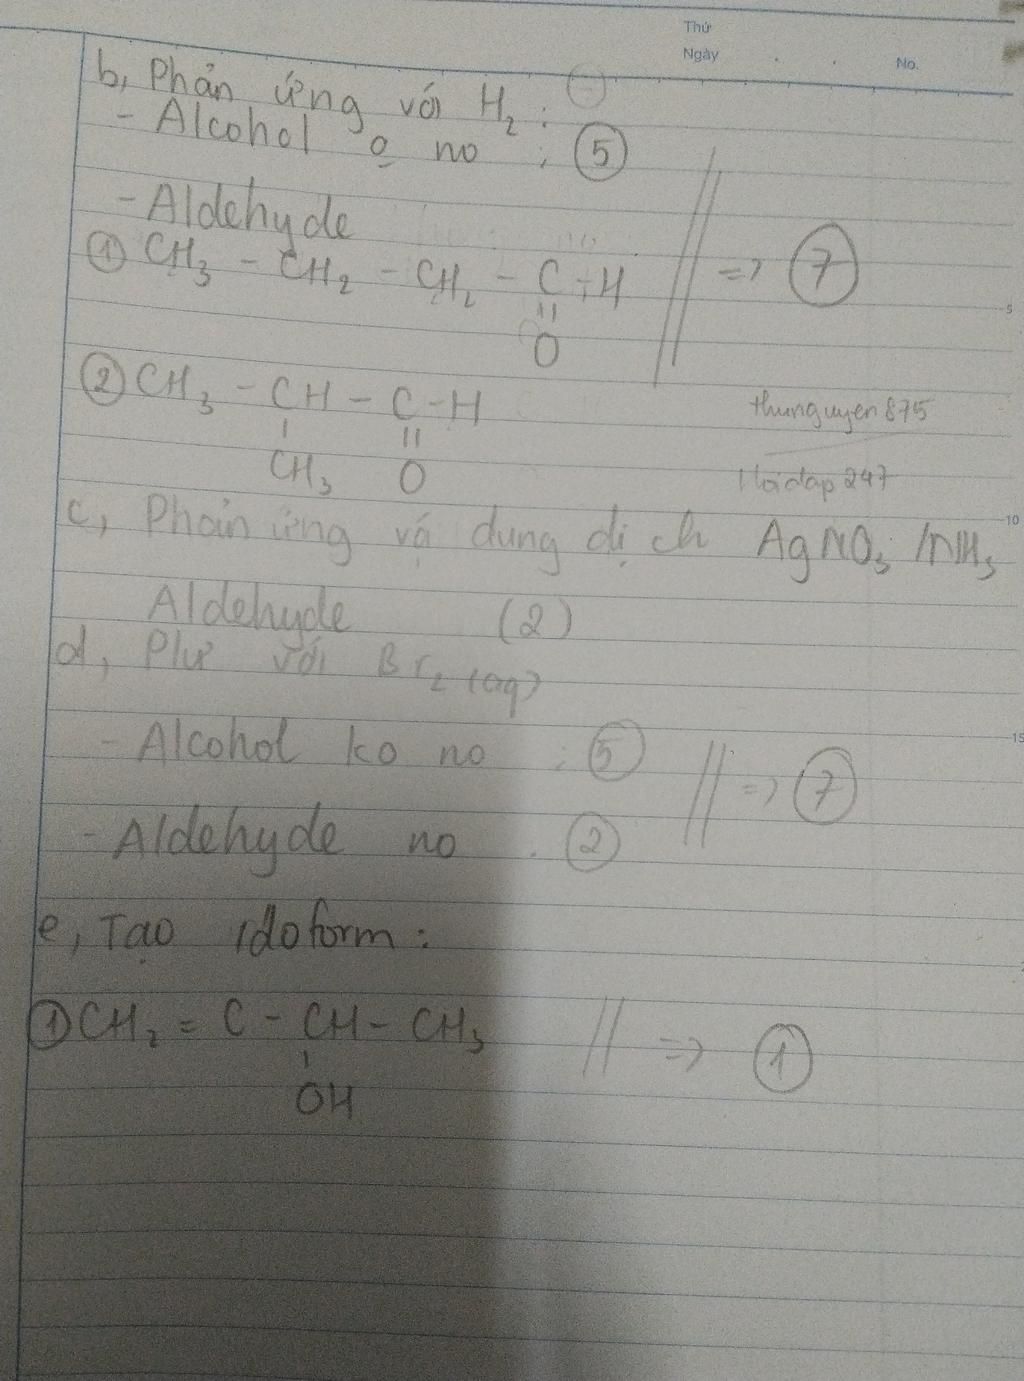 Thứ
Ngày
No.
b, Phản ứng với H₂ :
- Alcohol o no : ⑤
- Aldehyde
① CH₃ - CH₂ - CH₂ - C - H
=> ⑦
||
O
② CH₃ - CH - C - H
thunguyen875
CH₃ O
Hoidap 247
c, Phản ứng vớ dung dịch AgNO₃ /NH₃
Aldehyde (2)
d, Pư với Br₂ (aq)
- Alcohol ko no : ⑤
=> ⑦
- Aldehyde no . ②
e, Tạo Idoform :
① CH₂ = C - CH - CH₃
=> ①
OH
5
10
15